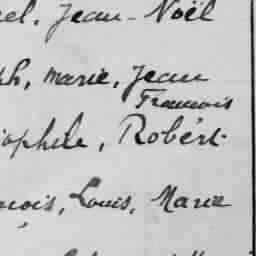 el, Jean-Noël
ph, Marie, Jean
François
iophile, Robert
nçois, Louis, Marie